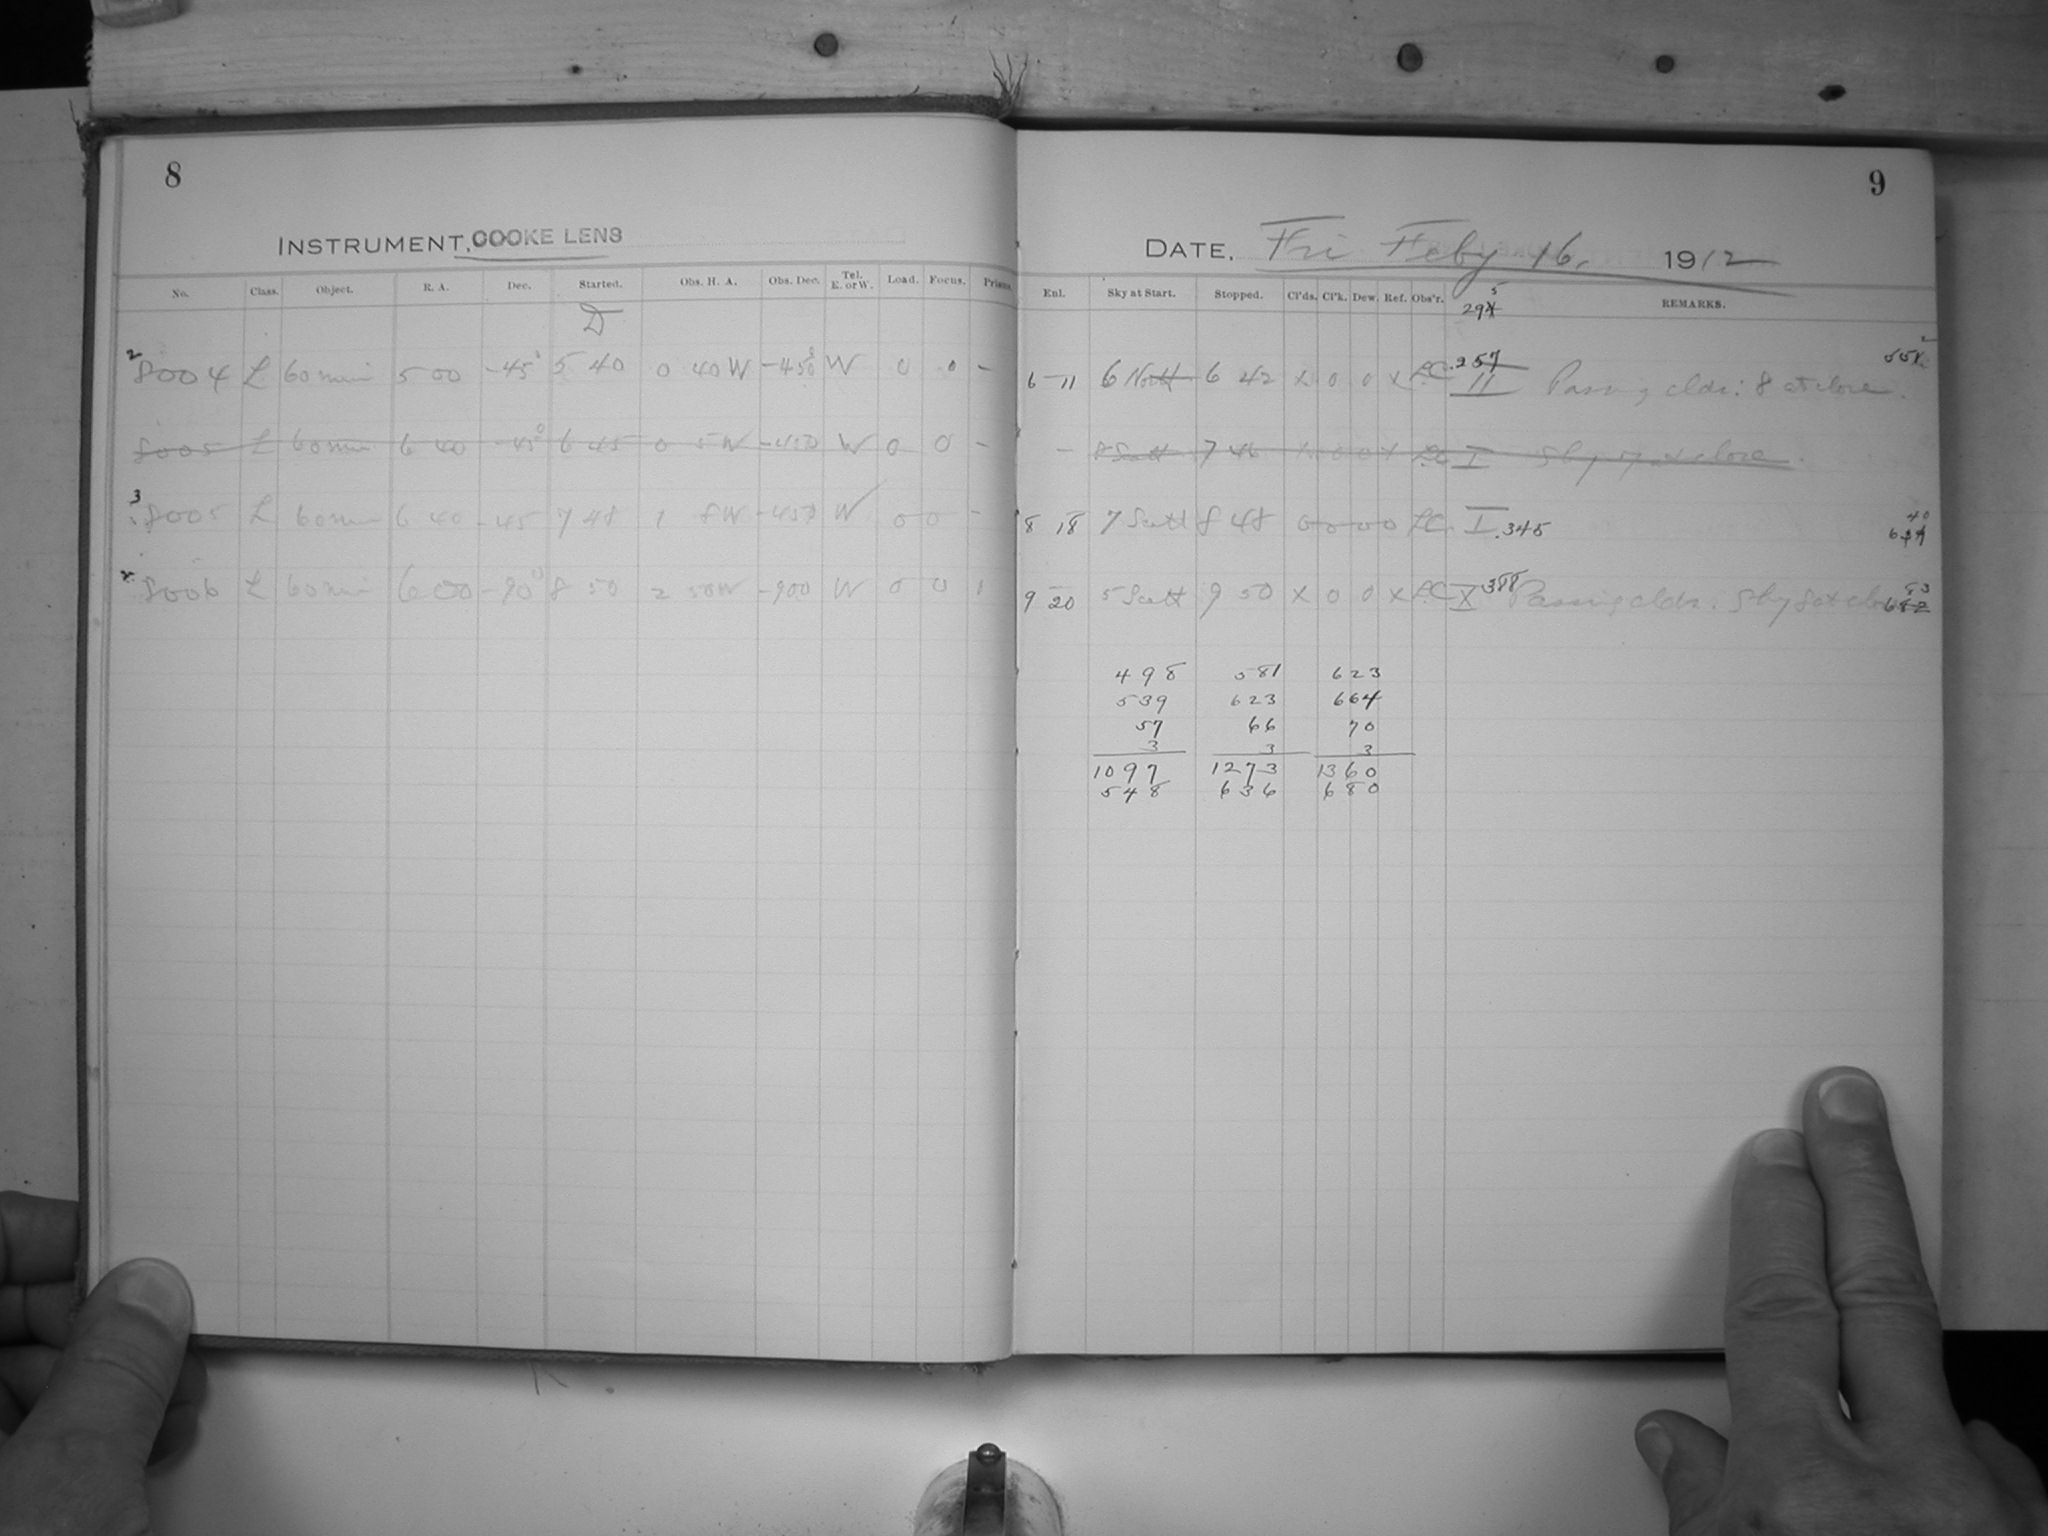 8
INSTRUMENT, COOKE LENS
No. Class. Object. R. A. Dec. Started. Obs. H. A. Obs. Dec. Tel. E. or W. Load. Focus. Prism.
D
2 8004 L 60 min 5 00 -45° 5 40 0 40 W -45° W 0 0 -
8005 L 60 min 6 40 -45° 6 45 0 5 W -450 W 0 0 -
3 8005 L 60 min 6 40 -45 7 48 1 8 W -450 W 0 0 -
8006 L 60 min 6 00 -90° 8 50 2 50 W -900 W 0 0
9
DATE. Fri Feby 16, 1912
Enl. Sky at Start. Stopped. Cl'ds. Cl'k. Dew. Ref. Obs'r. REMARKS.
5
294
6 11 6 6 42 x 0 0 x LC .257 II Passing clds: 8 at close.
- 8 Scatt 7 46 x 0 0 x LC I Sky 7 at close.
8 18 7 Scatt 8 48 0 0 0 0 LC. I .345 40
9 20 5 Scatt 9 50 x 0 0 x LC X 388 Passing clds. Sky 8 at close 83
498 581 623
539 623 664
57 66 70
3 3 3
1097 1273 1360
548 636 680